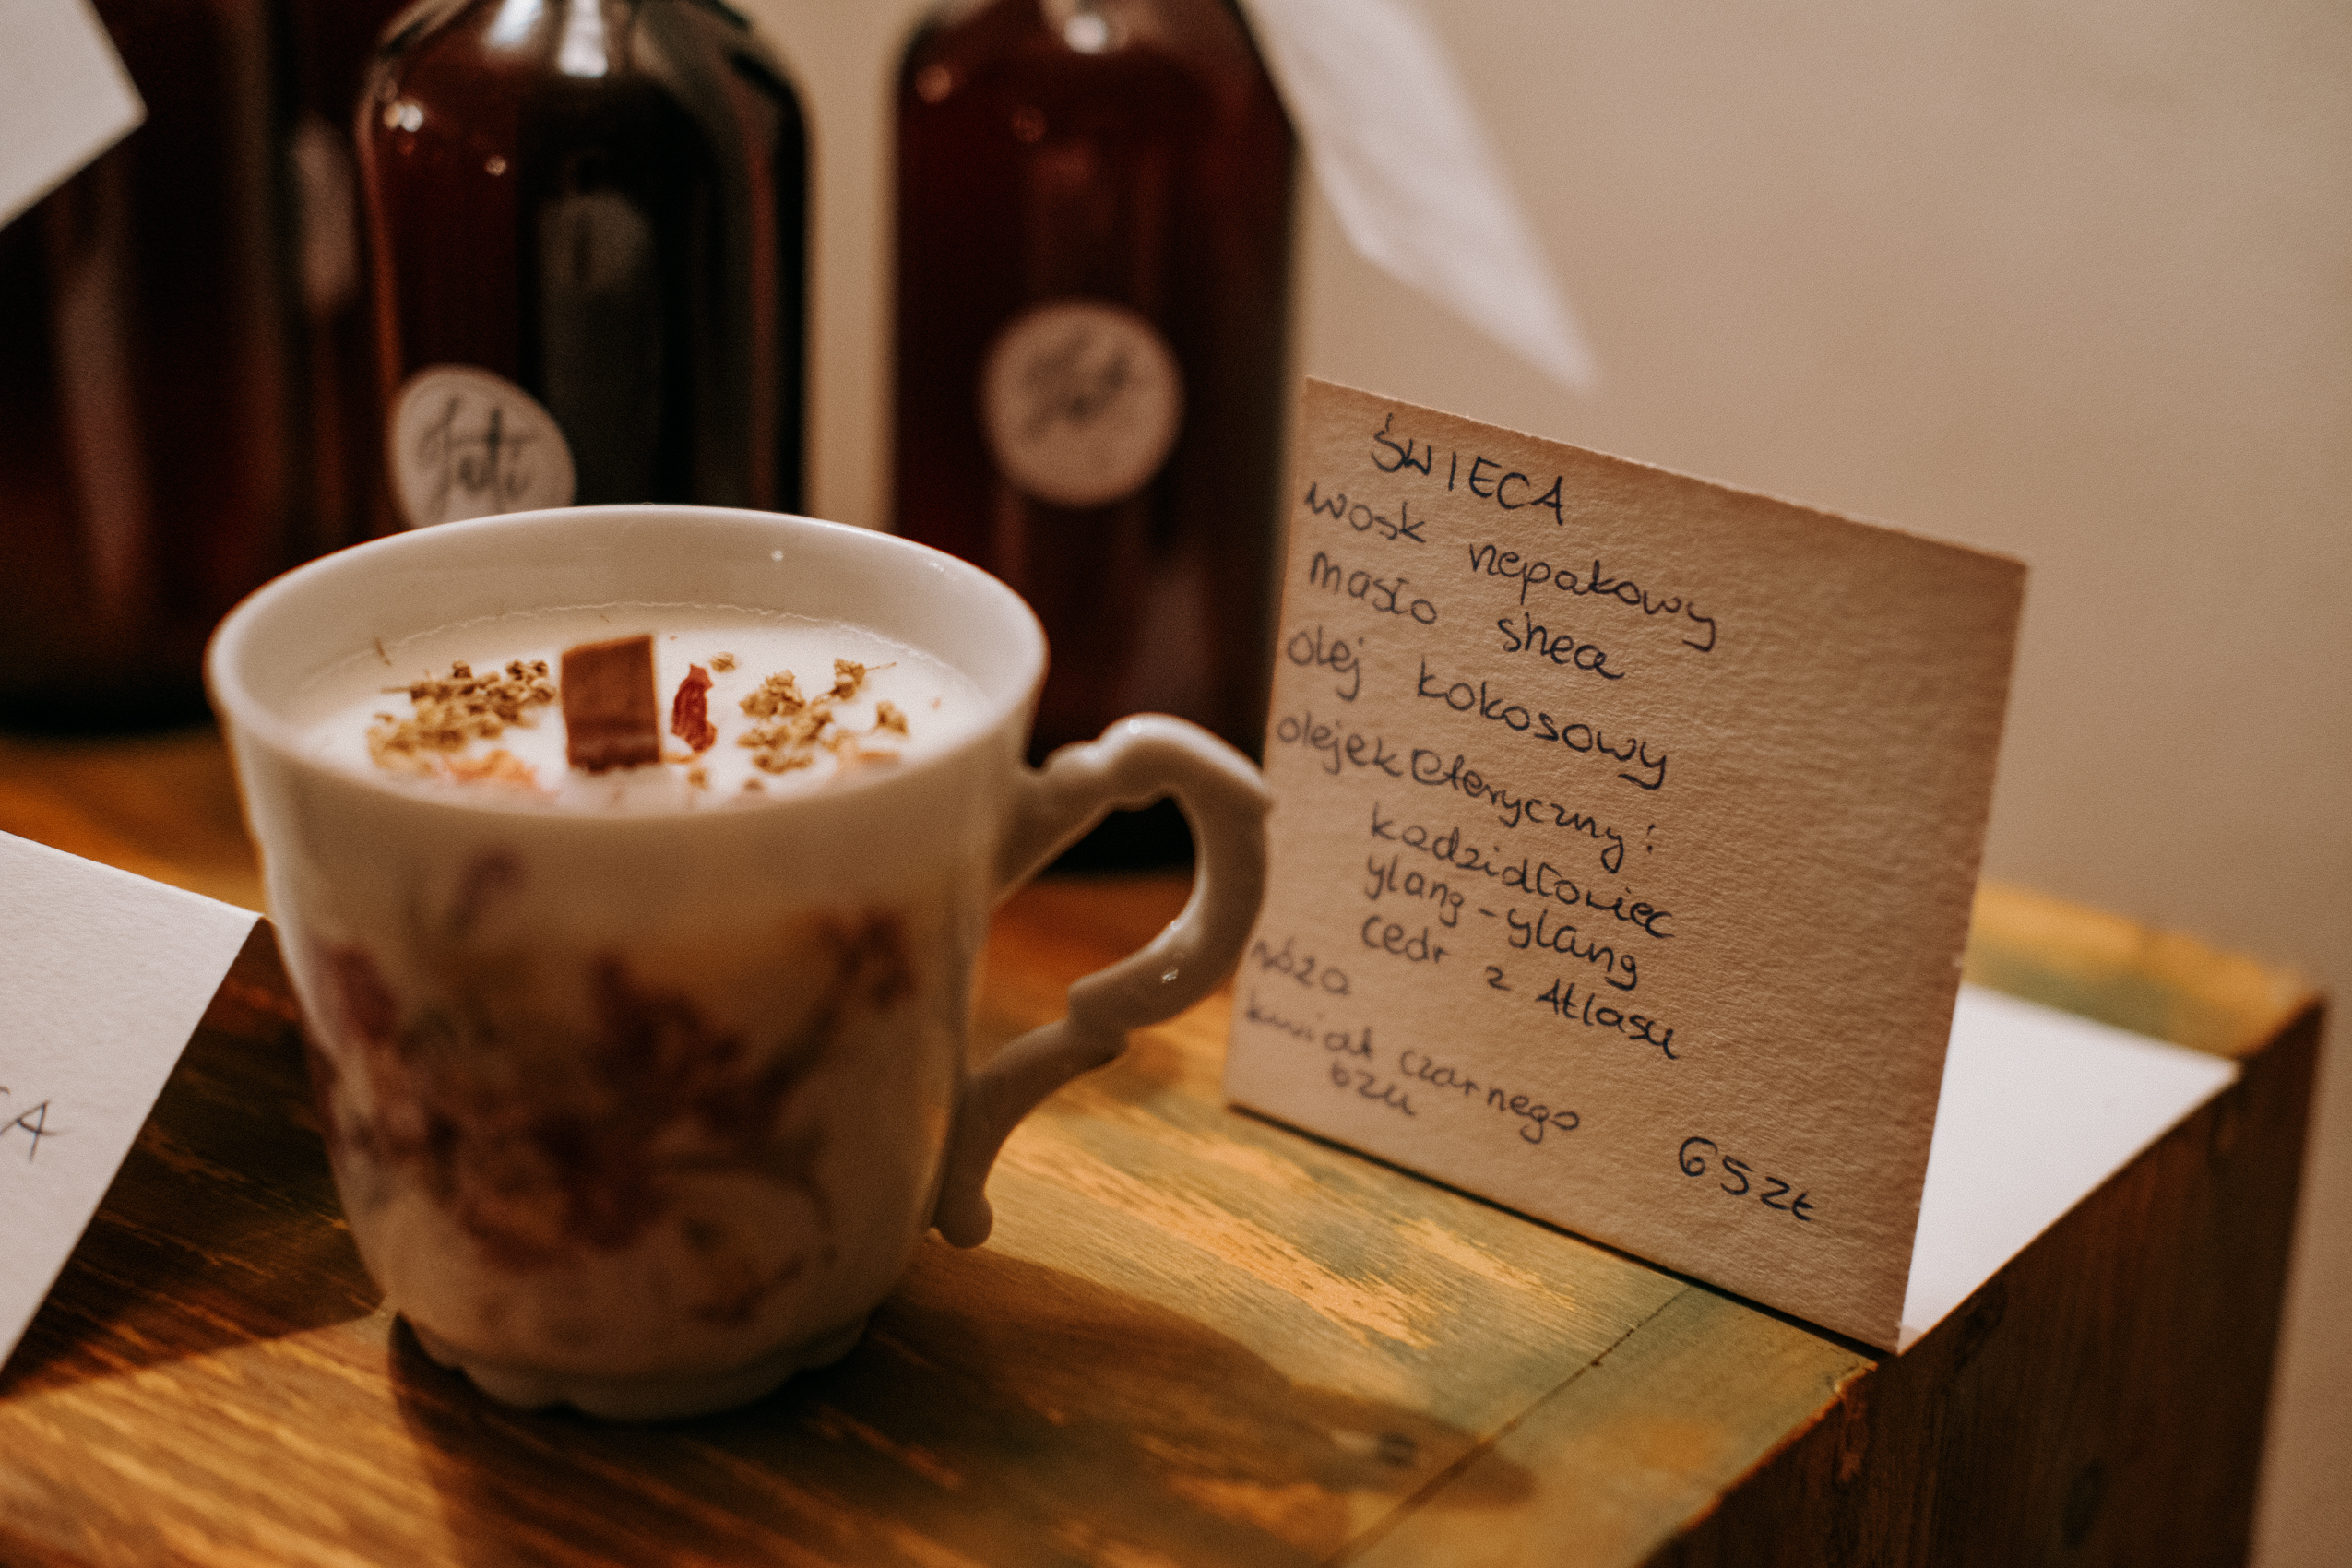 Jati
ŚWIECA
wosk rzepakowy
masło shea
olej kokosowy
olejek eteryczny:
kadzidłowiec
ylang-ylang
cedr z Atlasu
róża
kwiat czarnego
bzu
65zł
CA